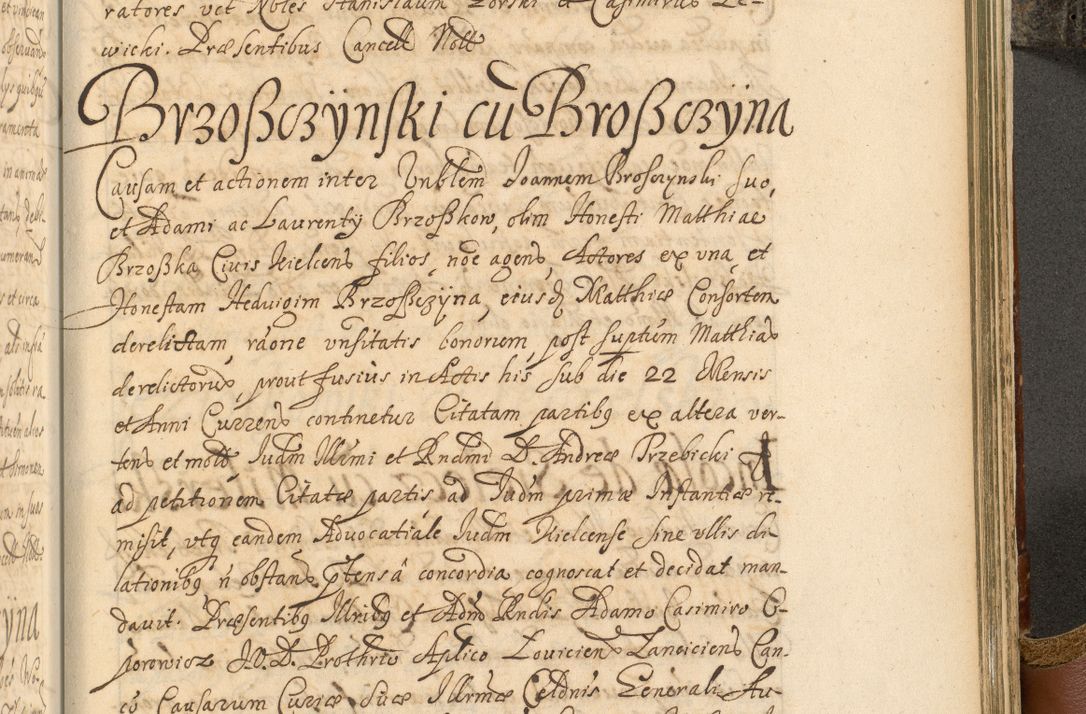 ratores vct Nobles Stanislaum Zorski et Casimirus Le-
wicki. Præsentibus Cancell Notto
Brzoßczÿnski cũ Broßczÿna
Causam et actionem inter Vnblem Joannem Brosczynski suo,
et Adami ac Laurentÿ Brzoßkow, olim Honesti Matthiae
Brzoßka Ciuis Kielcens filios, noe agens, Actores ex vna, et
Honestam Heduigim Brzoßczÿna, eiusd Matthiæ Consortem
derelictam, raone vnsitatis bonorum, post suptum Matthias
derelictorus, prout fusius in Actis his sub die 22 Mensis
et Anni Currens continetur Citatam partibq ex altera ver-
tens et mott Judm Illmi et Rndmi D. Andreæ Przebicki
ad petitionem Citatæ partis ad Judm primæ Instantiæ re-
misit, vtq eandem Aduocatiale Judm Kielcense sine vllis di-
lationibq n obstans ptensa concordia cognoscat et decidat man-
dauit. Præsentibq Illribq et Adm Rndis Adamo Casimiro O-
porowicz J.V.D. Prothrio Aplico Louiciens Lanciciens Can-
co Causarum Curiæ suæ Illrmæ Celdnis Generali Au-